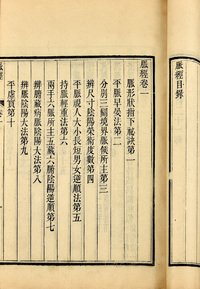 脈經目錄
脈經卷一
脈形狀指下祕訣第一
平脈早晏法第二
分別三關境界脈候所主第三
辨尺寸陰陽榮衛度數第四
平脈視人大小長短男女逆順法第五
持脈輕重法第六
兩手六脈所主五藏六腑陰陽逆順第七
辨臓腑病脈陰陽大法第八
辨脈陰陽大法第九
平虛實第十